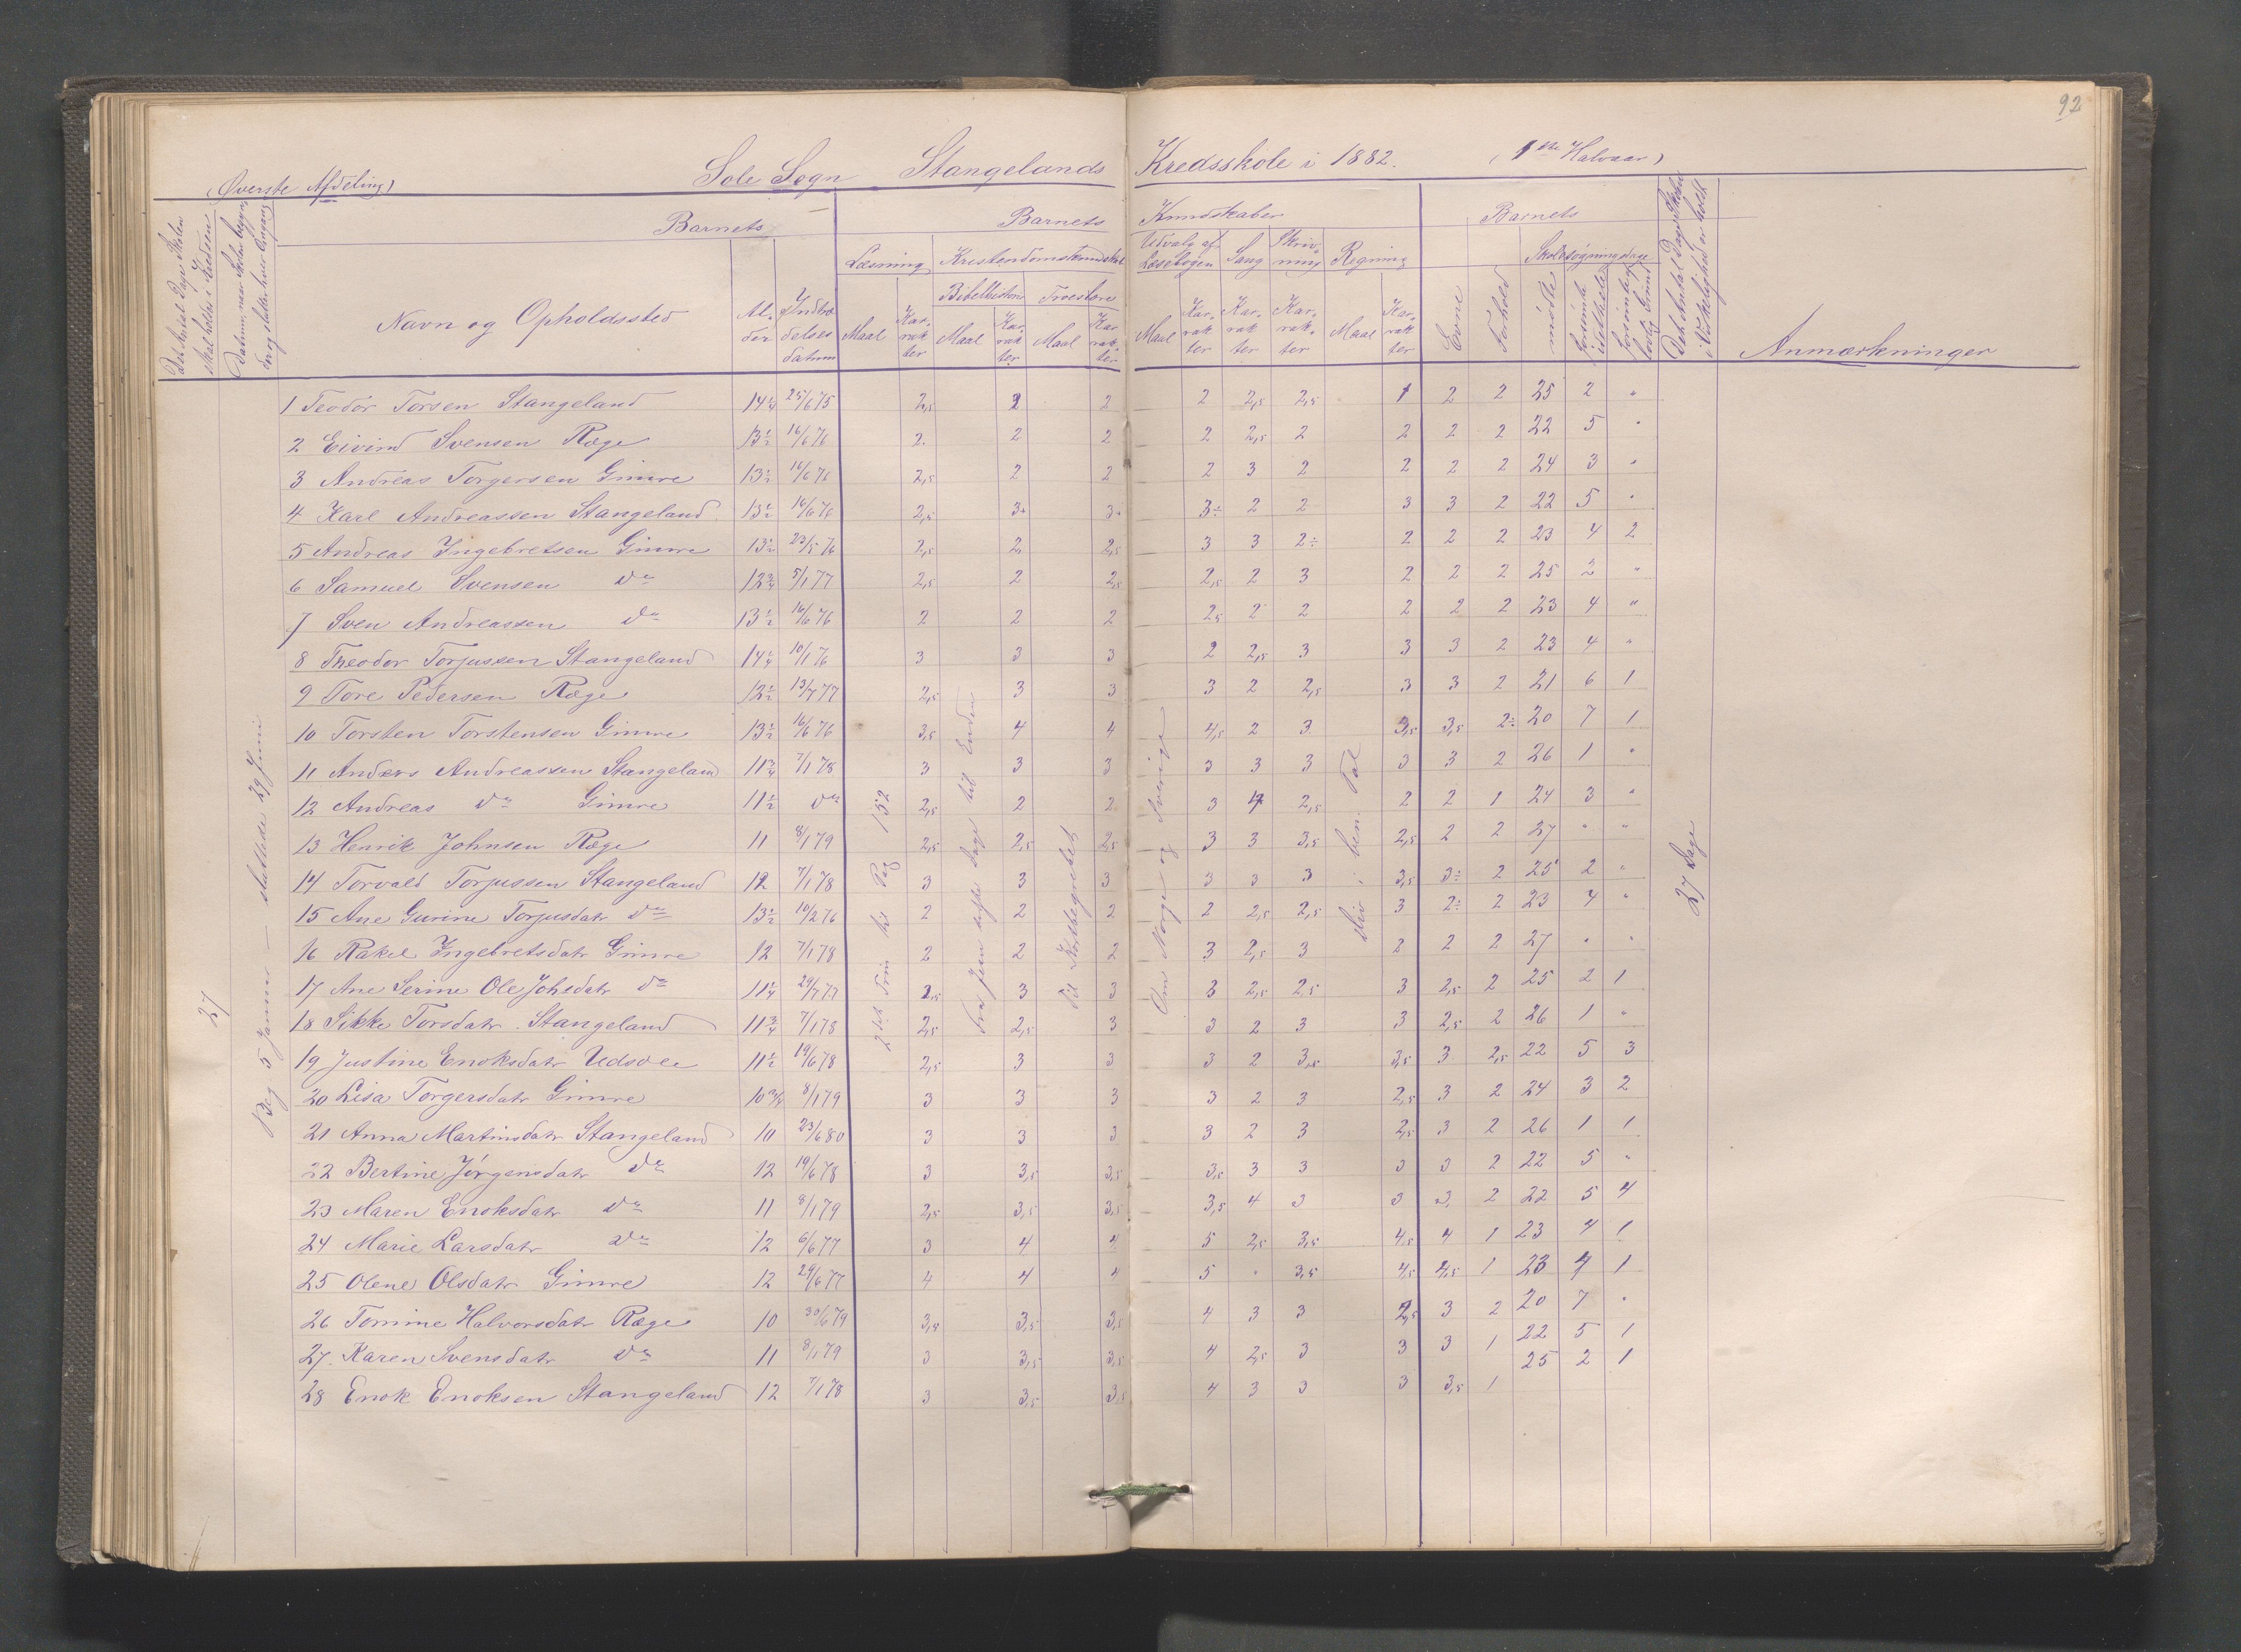 92
(Øverste Afdeling) Sole Sogn Stangelands Kredsskole i 1882. (1ste Halvaar)
Det Antal Dage Skolen skal holdes i Kredsen
Datum, naar Skolen begynder og slutter hver Omgang
Barnets
Barnets Kundskaber
Barnets
Det Antal Dage Skolen i Virkelighed er holdt
Læsning Kristendomskundskab Udvalg af Læsebogen Sang Skrivning Regning
Skolesøgningsdage
Bibelhistorie Troeslære
Navn og Opholdssted Alder Indtrædelsesdatum Maal Karakter Maal Karakter Maal Karakter Maal Karakter Karakter Karakter Maal Karakter Evne Forhold mødte forsømte i det hele forsømte af lovlig Grund Anmærkninger
1 Teodor Torsen Stangeland 14 1/4 25/6 75 2,5 2 2 2 2,5 2,5 1 2 2 25 2 "
2 Eivind Svensen Ræge 13 1/2 16/6 76 2. 2 2 2 2,5 2 2 2 2 22 5 "
3 Andreas Torgersen Gimre 13 1/2 16/6 76 2,5 2 2 2 3 2 2 2 2 24 3 "
4 Karl Andreassen Stangeland 13 1/2 16/6 76 2,5 3+ 3+ 3÷ 2 2 3 3 2 22 5 "
5 Andreas Ingebretsen Gimre 13 1/2 23/5 76 2,5 2 2,5 3 3 2÷ 2 2 2 23 4 2
6 Samuel Svensen do 12 3/4 5/1 77 2,5 2 2,5 2,5 2 3 2 2 2 25 2 "
7 Sven Andreassen do 13 1/2 16/6 76 2 2 2 2,5 2 2 2 2 2 23 4 "
8 Theodor Torjussen Stangeland 14 1/4 10/1 76 3 3 3 2 2,5 3 3 3 2 23 4 "
9 Tore Pedersen Ræge 12 1/2 13/7 77 2,5 3 3 3 2 2,5 3 3 2 21 6 1
10 Torsten Torstensen Gimre 13 1/2 16/6 76 3,5 4 4 4,5 2 3 3,5 3,5 2÷ 20 7 1
11 Anders Andreassen Stangeland 11 3/4 7/1 78 3 3 3 3 3 3 3 3 2 26 1 "
12 Andreas do Gimre 11 1/2 do 2,5 2 2 3 4 2,5 2 2 1 24 3 "
13 Henrik Johnsen Ræge 11 8/1 79 2,5 2,5 2,5 3 3 3,5 2,5 2 2 27 " "
14 Torvald Torjussen Stangeland 12 7/1 78 3 3 3 3 3 3 3,5 3÷ 2 25 2 "
15 Ane Gurine Torjusdatr do 13 1/2 10/2 76 2 2 2 2 2,5 2,5 3 2÷ 2 23 4 "
16 Rakel Ingebretsdatr Gimre 12 7/1 78 2 2 2 3 2,5 3 2 2 2 27 " "
17 Ane Serine Ole Johsdatr do 11 1/4 24/7 77 2,5 3 3 3 2,5 2,5 3 2,5 2 25 2 1
18 Sikke Torsdatr. Stangeland 11 3/4 7/1 78 2,5 2,5 3 3 2 3 3 2,5 2 26 1 "
19 Justine Enoksdatr Udsole 11 1/2 19/6 78 2,5 3 3 3 2 3,5 3,5 3 2,5 22 5 3
20 Lisa Torgersdatr Gimre 10 3/4 8/1 79 3 3 3 3 2 3 2,5 3 2 24 3 2
21 Anna Martinsdatr Stangeland 10 23/6 80 3 3 3 3 2 3 2,5 3 2 26 1 1
22 Bertine Jørgensdatr do 12 19/6 78 3 3,5 3,5 3,5 3 3 3 3 2 22 5 "
23 Maren Enoksdatr do 11 8/1 79 2,5 3,5 3,5 3,5 4 3 3 3 2 22 5 4
24 Marie Larsdatr do 12 6/6 77 3 4 4 5 2,5 3,5 4,5 4 1 23 4 1
25 Olene Olsdatr Gimre 12 24/6 77 4 4 4 5 " 3,5 4,5 4,5 1 23 4 1
26 Tomine Halvorsdatr Ræge 10 30/6 79 3,5 3,5 3,5 4 3 3 2,5 3 2 20 7 "
27. Karen Svensdatr do 11 8/1 79 3 3,5 3,5 4 2,5 3 3 3 1 22 5 1
28 Enok Enoksen Stangeland 12 7/1 78 3 3,5 3,5 4 3 3 3 3,5 1 25 2 1
27
Beg 5 Januar – sluttede 29 Juni
2det Trin til Pag 152
til Enden
Til
Om Norge og Sverige
i ben. Tal
27 Dage